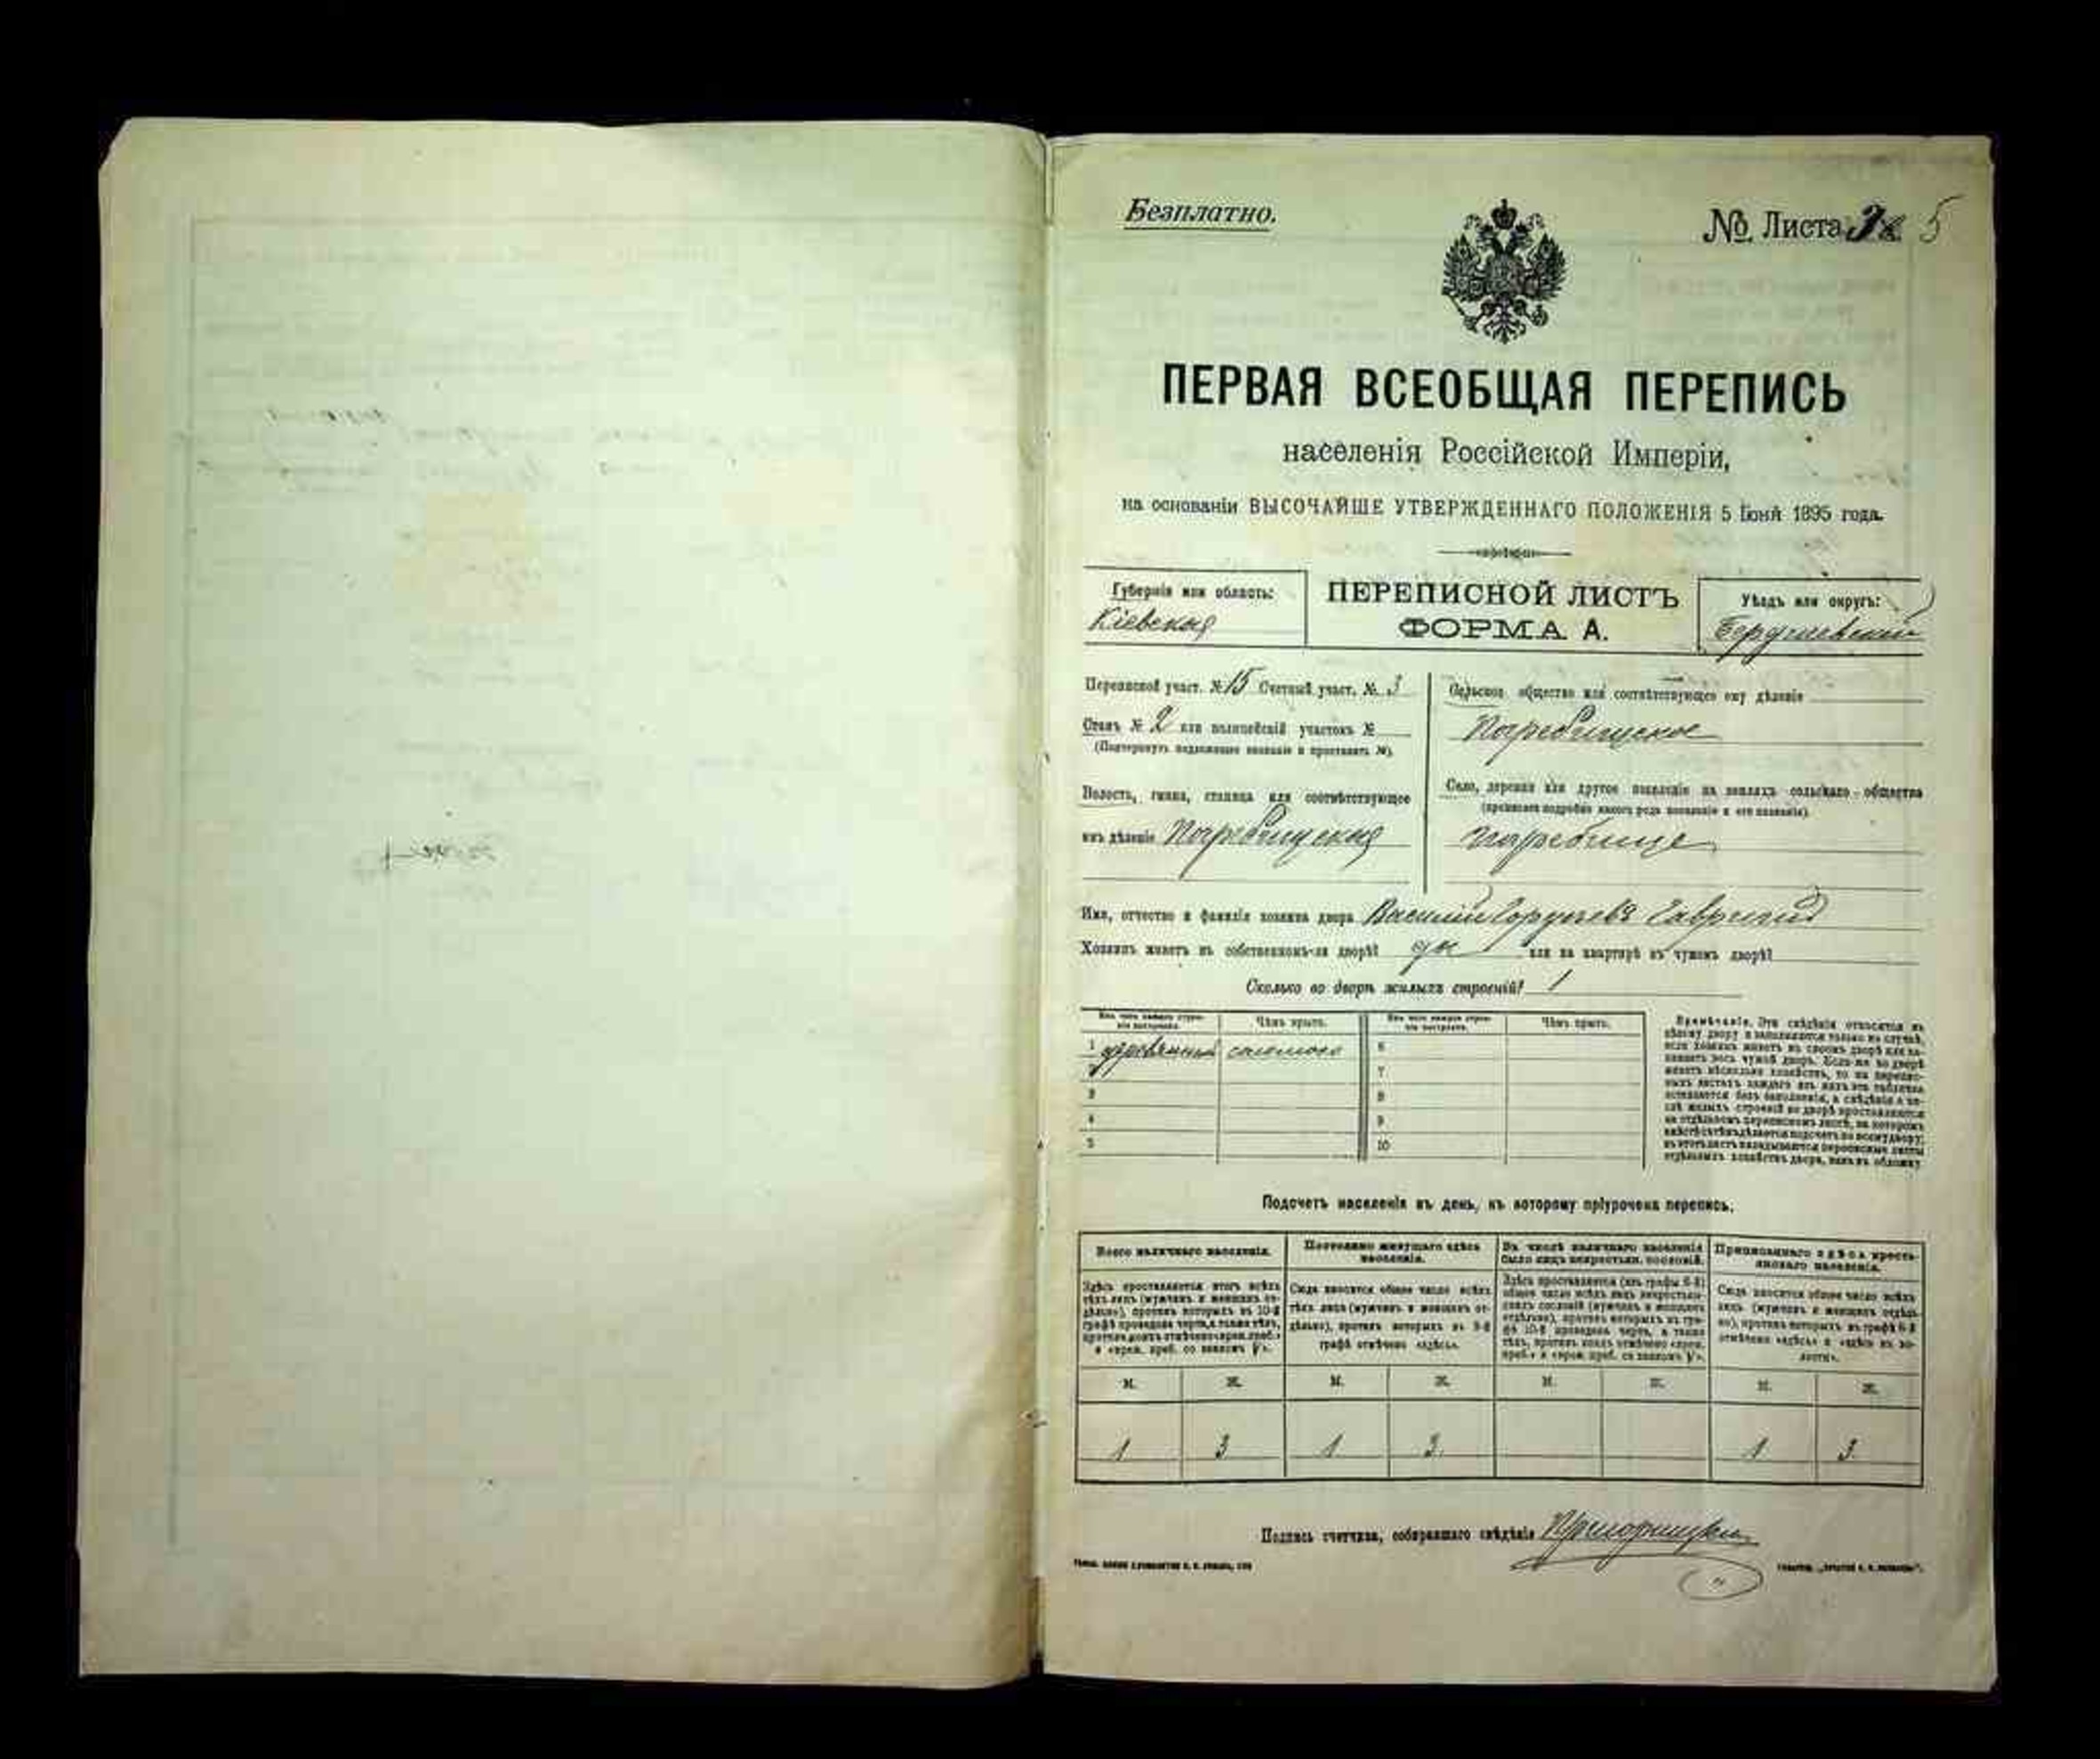 Безплатно.
№ Листа 5
ПЕРВАЯ ВСЕОБЩАЯ ПЕРЕПИСЬ
населенія Россійской Имперіи,
на основаніи ВЫСОЧАЙШЕ УТВЕРЖДЕННАГО ПОЛОЖЕНІЯ 5 Іюня 1895 года.
Губернія или область:
Кіевская
ПЕРЕПИСНОЙ ЛИСТЪ
ФОРМА А.
Уѣздъ или округъ:
Бердичевскій
Переписной участ. № 15 Счетный участ. № 3
Станъ № 2 или полицейскій участокъ №
(Подчеркнуть надлежащее названіе и проставить №).
Волость, гмина, станица или соотвѣтствующее
имъ дѣленіе Погребищская
Сельское общество или соотвѣтствующее ему дѣленіе
Погребищское
Село, деревня или другое поселеніе на земляхъ сельскаго общества
(прописать подробно какого рода поселеніе и его названіе).
Погребище
Имя, отчество и фамилія хозяина двора Василій Гаврилюк
Хозяинъ живетъ въ собственномъ-ли дворѣ? да или на квартирѣ въ чужомъ дворѣ?
Сколько во дворѣ жилыхъ строеній? 1
Изъ чего каждое строеніе построено.
Чѣмъ крыто.
Изъ чего каждое строеніе построено.
Чѣмъ крыто.
1 деревянный соломою 6
2 7
3 8
4 9
5 10
Примѣчаніе. Эти свѣдѣнія относятся къ
цѣлому двору и заполняются только въ случаѣ,
если хозяинъ живетъ въ своемъ дворѣ или занимаетъ весь чужой дворъ. Если-же во дворѣ
живетъ нѣсколько хозяйствъ, то на переписныхъ листахъ каждаго изъ нихъ эта табличка
оставляется безъ заполненія, а свѣдѣнія о числѣ жилыхъ строеній во дворѣ проставляются
на отдѣльномъ переписномъ листѣ, на которомъ
вмѣстѣ съ тѣмъ дѣлается подсчетъ по всему двору;
въ этотъ листъ вкладываются переписные листы
отдѣльныхъ хозяйствъ двора, какъ въ обложку.
Подсчетъ населенія въ день, къ которому пріурочена перепись.
Всего наличнаго населенія.
Постоянно живущаго здѣсь населенія.
Въ числѣ наличнаго населенія было лицъ некрестьян. сословій.
Приписаннаго здѣсь крестьянскаго населенія.
Здѣсь проставляется итогъ всѣхъ тѣхъ лицъ (мужчинъ и женщинъ отдѣльно), противъ которыхъ въ 10-й графѣ проведена черта, а также тѣхъ, противъ коихъ отмѣчено «врем. преб.»
Сюда вносится общее число всѣхъ тѣхъ лицъ (мужчинъ и женщинъ отдѣльно), противъ которыхъ въ 9-й графѣ отмѣчено «здѣсь».
Здѣсь проставляется (изъ графы 6-й) общее число всѣхъ лицъ некрестьянскихъ сословій (мужчинъ и женщинъ отдѣльно), противъ которыхъ въ графѣ 10-й проведена черта, а также тѣхъ, противъ коихъ отмѣчено «врем. преб.»
Сюда вносится общее число всѣхъ лицъ (мужчинъ и женщинъ отдѣльно), противъ которыхъ въ графѣ 8-й отмѣчено «здѣсь» и «здѣсь въ волости».
М. Ж. М. Ж. М. Ж. М. Ж.
1 3 1 3 1 3
Подпись счетчика, собиравшаго свѣдѣнія